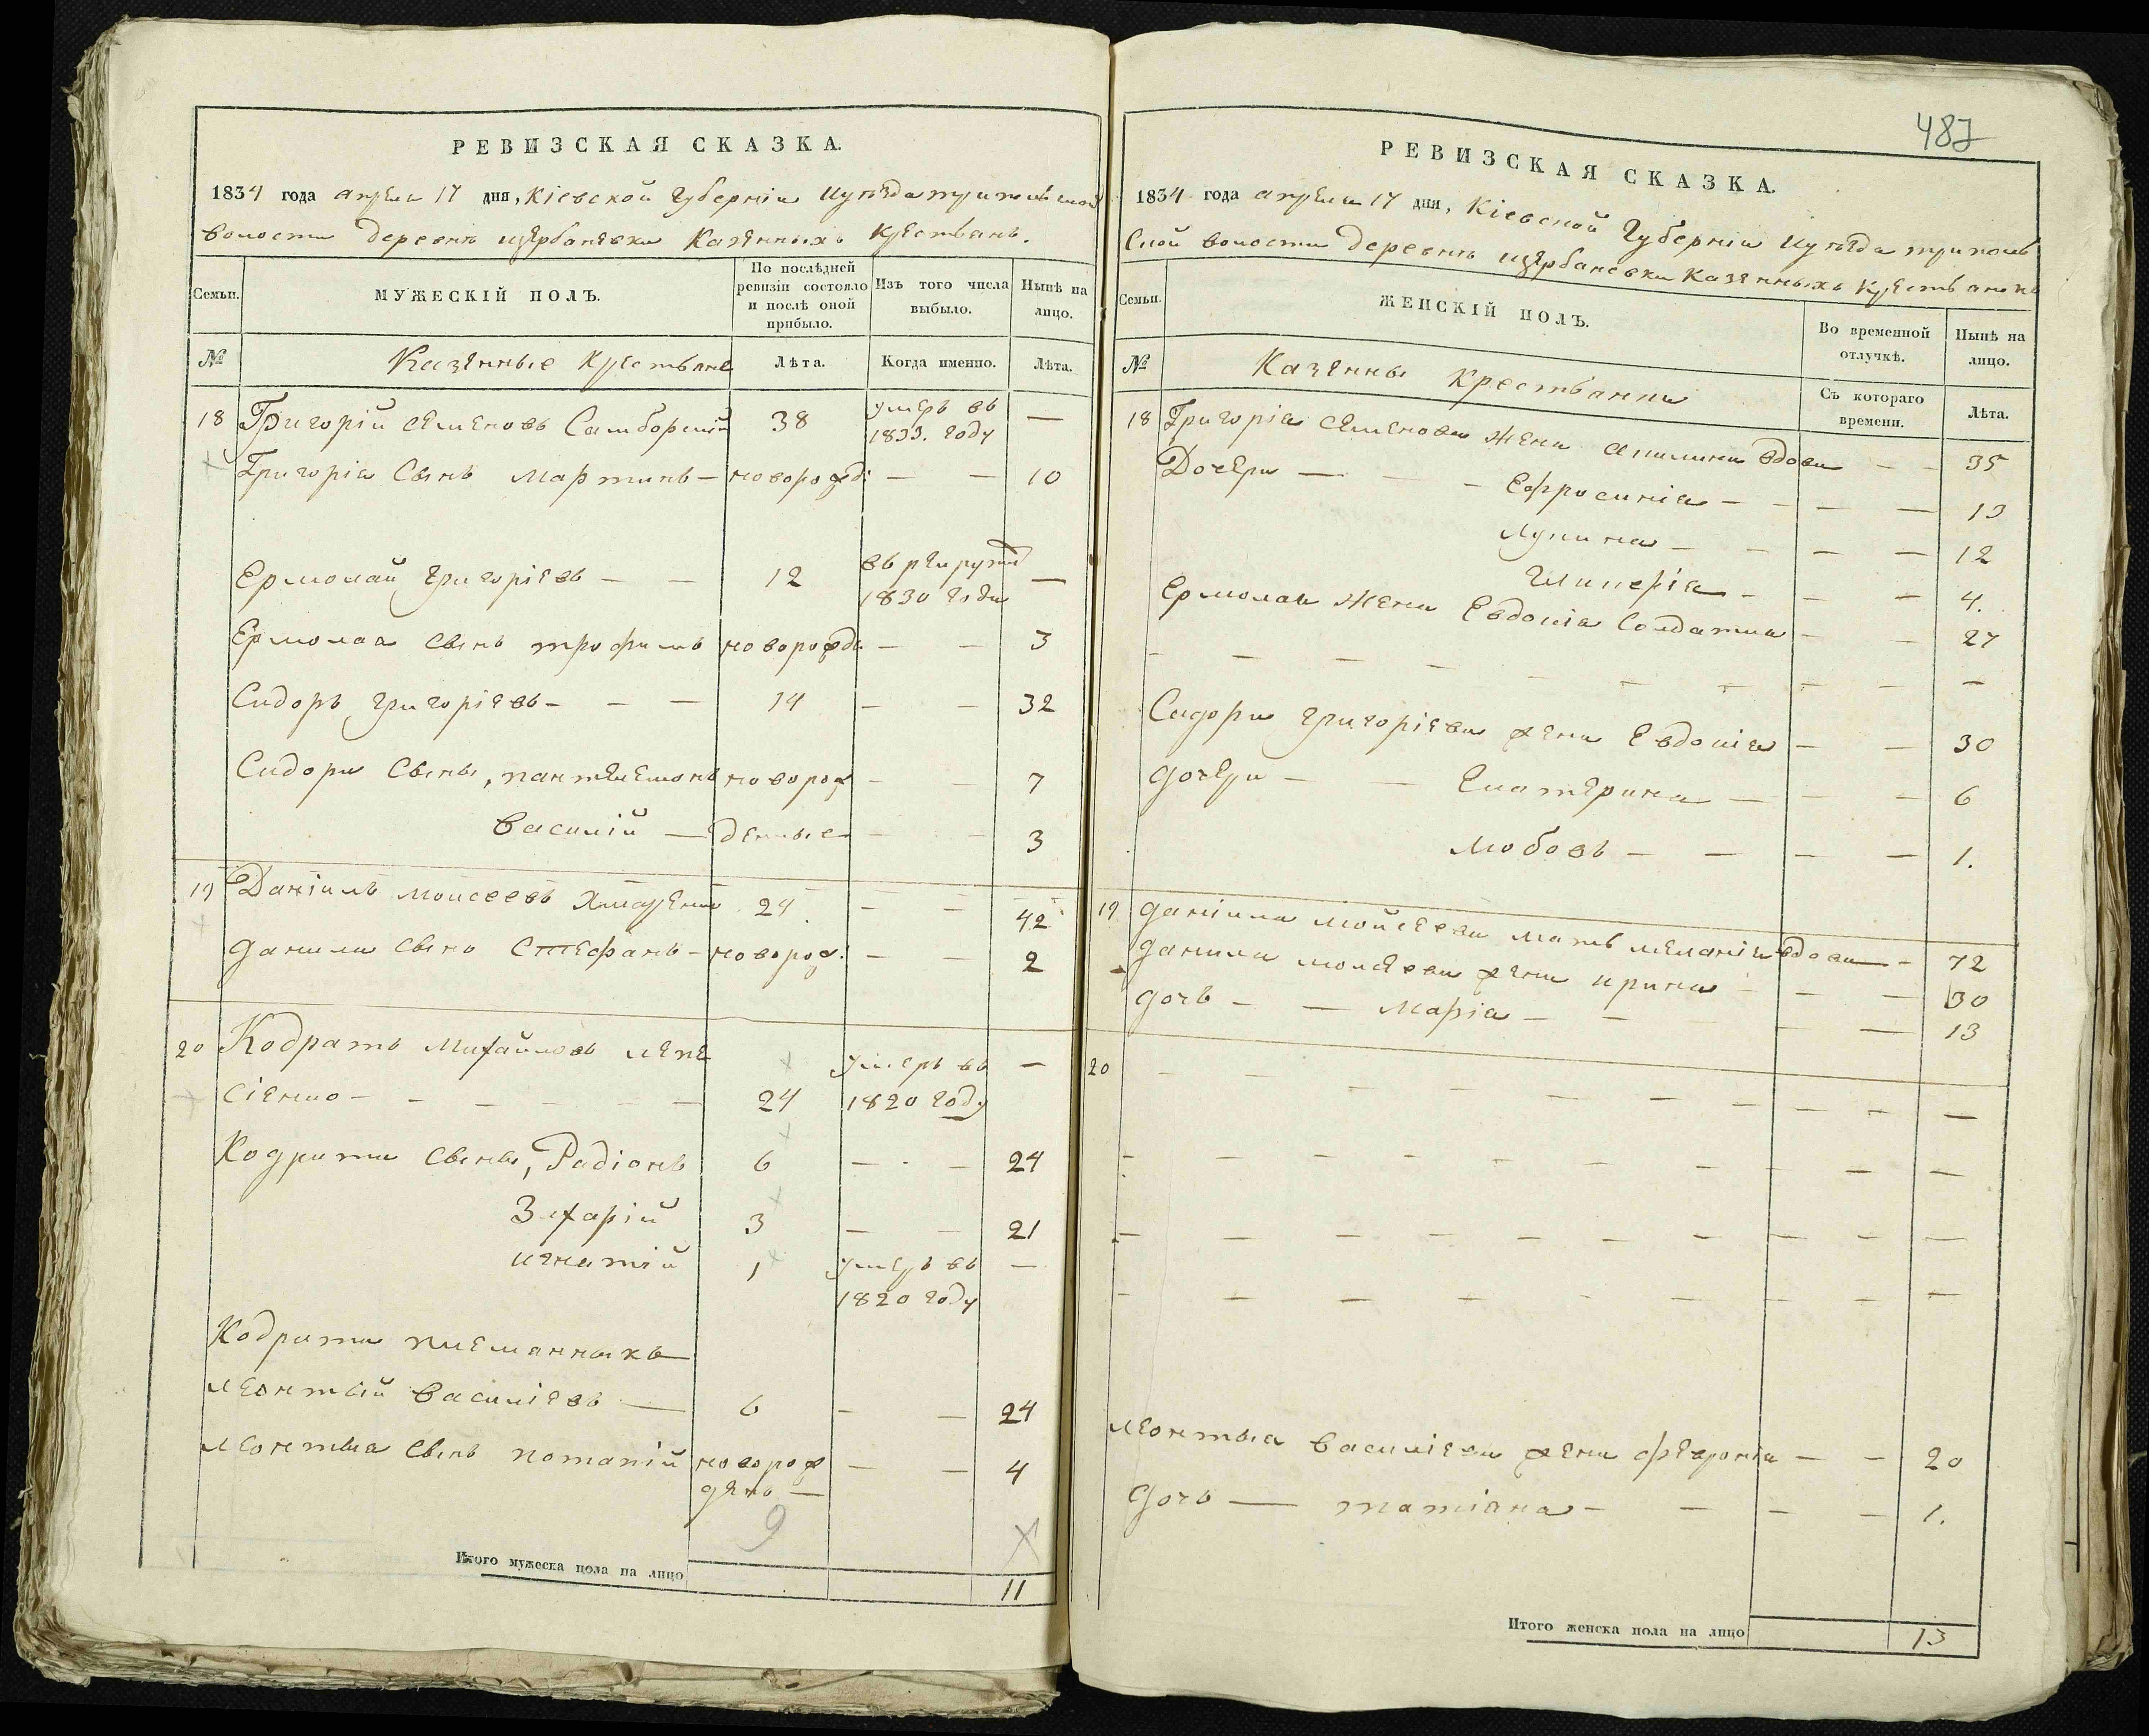 487
РЕВИЗСКАЯ СКАЗКА.
1834 года апреля 17 дня, Кіевской Губерніи и уѣзда трипольской
волости деревнѣ щербаневки Казенныхъ крестьянъ.
Семьи.
МУЖЕСКІЙ ПОЛЪ.
По послѣдней ревизіи состояло и послѣ оной прибыло.
Изъ того числа выбыло.
Нынѣ на лицо.
№ Казенные Крестьяне Лѣта. Когда именно. Лѣта.
18 Григорій Семеновъ Самборскій 38 умеръ въ 1833. году —
Григорія Сынъ Мартинъ — новорожд: — — 10
Ермолай Григоріевъ — — 12 въ рекруты 1830 года —
Ермолая Сынъ трофимъ новорожд. — — 3
Сидоръ Григоріевъ — — — 14 — — 32
Сидора Сыны, пантелемонъ новорож — — 7
Василій — денные — — 3
19 Даніилъ Моисеевъ 24 — — 42
Данила Сынъ Стефанъ — новорож: — — 2
20 Кодратъ Михайловъ умеръ въ —
— — — — — 24 1820 году
Кодрата Сыны, Радіонъ 6 — — 24
Захарій 3 — — 21
игнатій 1 умеръ въ —
1820 году
Кодрата племянникъ
леонтый Василіевъ — 6 — — 24
леонтыя Сынъ потапій новорож — — 4
денъ —
9
Итого мужеска пола на лицо 11
РЕВИЗСКАЯ СКАЗКА.
1834 года апреля 17 дня, Кіевской Губерніи и уѣзда триполь
Ской волости деревнѣ щербаневки Казенныхъ крестьянъ
Семьи.
ЖЕНСКІЙ ПОЛЪ.
Во временной отлучкѣ.
Нынѣ на лицо.
№ Казенны Крестьянки Съ котораго времени. Лѣта.
18 Григорія Семенова жена акилина вдова — — 35
Дочери — — — Ефросинія — — — — 13
Лукина — — — — 12
Гликерія — — — 4.
Ермолая жена Евдокія Солдатка — — 27
— — — — — — — — — —
Сидора Григоріева жена Евдокія — — 30
дочери — — Екатерина — — — 6
Любовь — — — — 1.
19 Даніила Мойсеева мать меланія вдова — — 72
Данила мойсеева жена ирина — — — 30
дочь — — Марія — — — — 13
20 — — — — — — — — — —
— — — — — — — — — —
— — — — — — — — — —
— — — — — — — — —
леонтыя Василіева жена феврония — — 20
дочь — татіана — — — — 1.
Итого женска пола на лицо 13